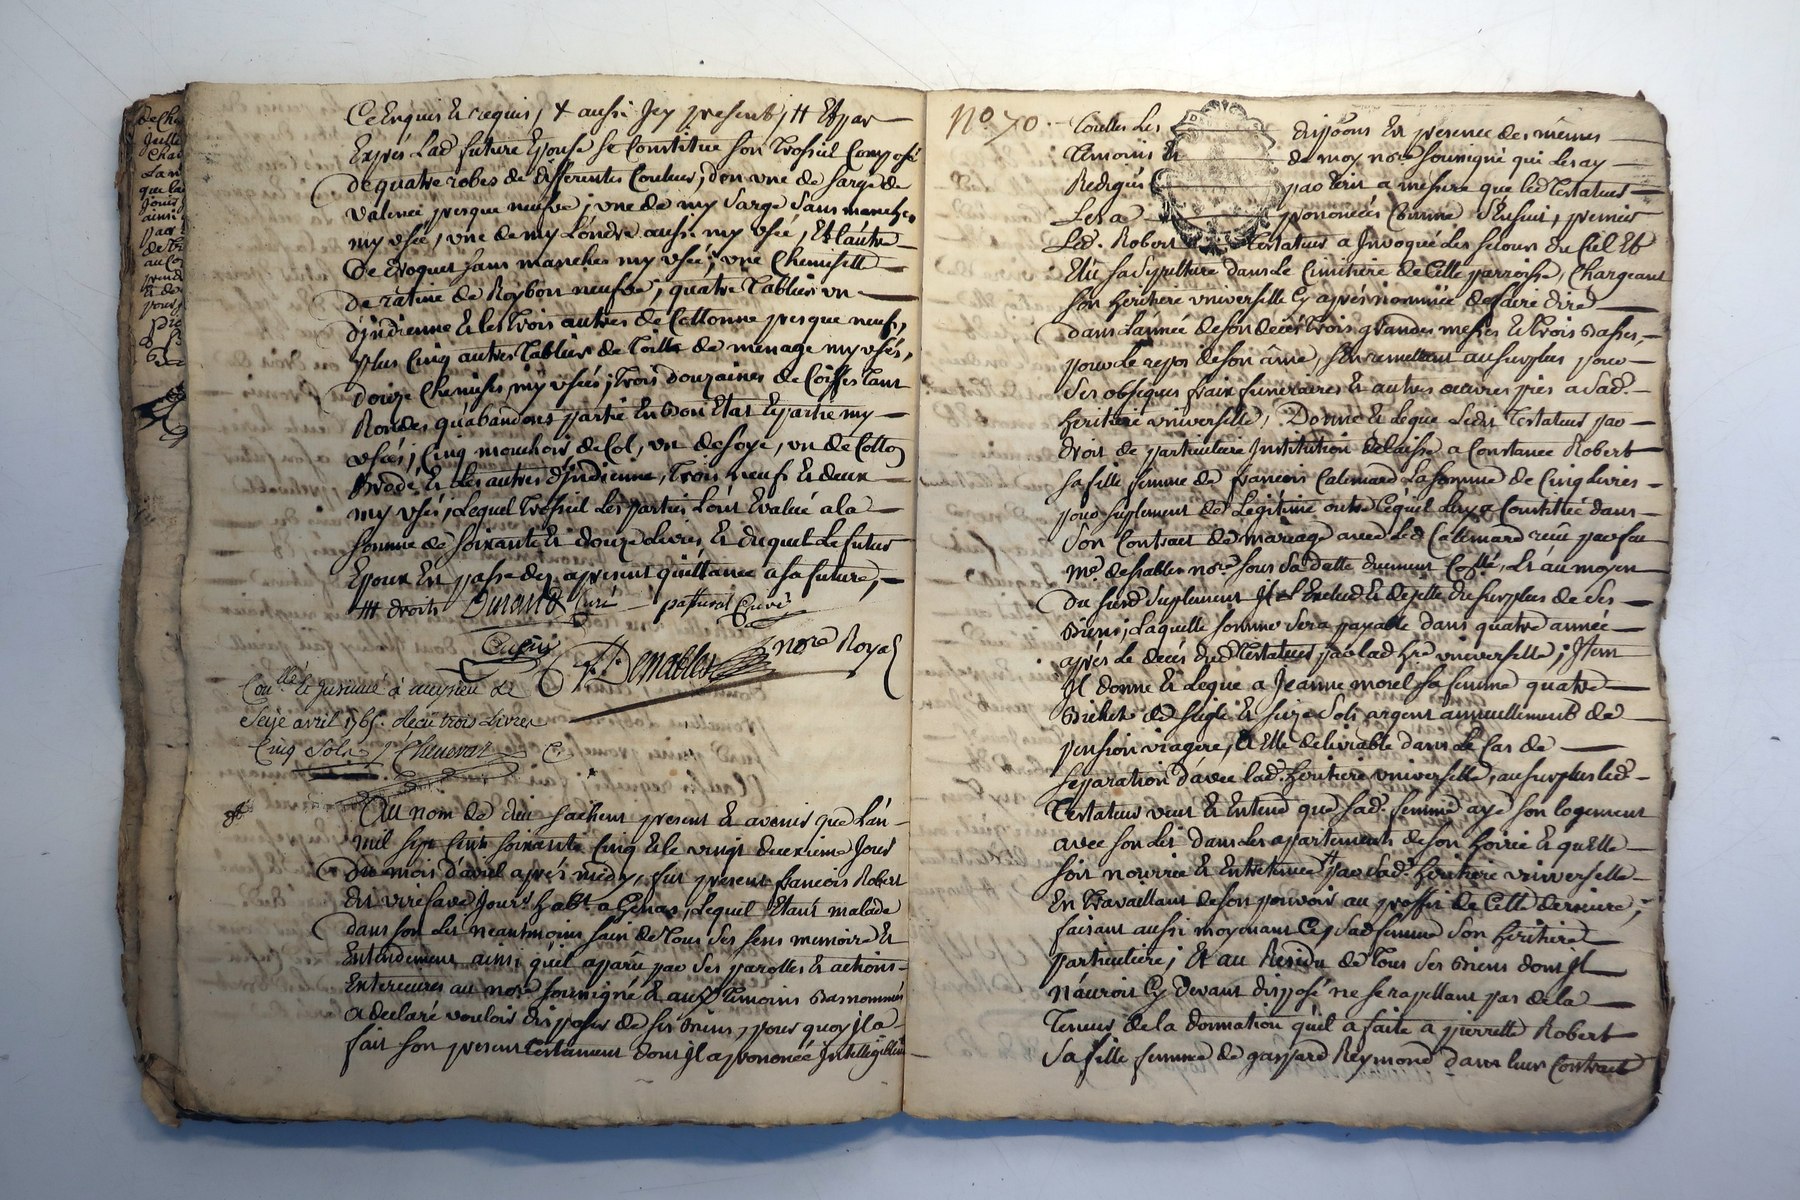 Ce Enquis & requis, + aussi Jcy present, # Et par
Exprés Lad. future Epouse se Constitue son Trossiel Composé
de quatre robes de differentes Couleurs, d'on une de sarge de
valence presque neufve, une de my sarge sans manches
my usée, une de my Londre aussi my usée, Et L'autre
de Croquet sans manches my usée, une Chemisette
de ratine de Roybon neufve, quatre Tabliers un
d'jndienne & les trois autres de Cottonne presque neufs,
plus Cinq autres Tabliers de Toille de menage my usés,
douze Chemises my usées, Trois douzaines de Coiffes Tant
Rondes qu'abandons partie En Bon Etat & partie my
usées, Cinq mouchoirs de Col, un de soye, un de Cotton
Brodé & les autres d'jndienne, Trois neufs & deux
my usés, Lequel Trossiel Les parties L'ont Evalué a la
somme de soixante & douze Livres & duquel Le futur
Epoux En passe dez apresent quittance a sa future,
### droits Durand Curé pascural Curé
nore Royal
Con.lé & Jnsinué à meysieu le
Seize avril 1765. Reçu trois Livres
Cinq Sols
Au nom de dieu sachent present & avenir que L'an
mil sept Cent soixante Cinq & le vingt deuxieme Jour
du mois d'avril après midy, fut present françois Robert
habt. a Genas, Lequel Etant malade
dans son Lit neantmoins sain de Tous ses sens memoire &
Entendement ainsi qu'il aparu par ses parolles & actions
Exterieures au nore soussigné & aux Temoins Basnommés
a declaré vouloir disposer de ses Biens, pour quoy jl a
fait son present Testament dont Jl a prononcé Jntelligiblemt
No. 70.
Toutes Les dispoõns En presence des mêmes
Temoins & de moy nore soussigné qui Les ay
Redigées par Ecrit a mesure que led Testateur
Les a prononcées Comme s'Ensuit, premier
Led. Robert Testateur a Jnvoqué Les secours du Ciel Et
Elû sa sepulture dans Le Cimitiere de Cette parroisse, Chargeant
son heritiere universelle Cy après nommée de faire dire
dans L'année de son decés Trois grandes messes & Trois Basses,
pour Le repos de son âme, s'en remettant au surplus pour
ses obseques fraix funeraires & autres œuvres pies a sad.
heritiere universelle, Donne & Legue Ledit Testateur par
droit de particuliere Jnstitution delaisse a Constance Robert
sa fille femme de françois Calemard La somme de Cinq Livres
pour suplement de Legitime outre Cequil Luy a Constitué dans
son Contrait de mariage avec Led Calemard reçu par feu
me. desrables nore. sous sa datte duement Collé., & au moyen
du susd suplement Jl L'Exclud & dejette du surplus de ses
Biens, Laquelle somme sera payable dans quatre année
après Le decés dud Testateur par lad. hre universelle; Jtem
Jl donne & Legue a Jeanne morel sa femme quatre
Bichets de seigle & seize sols argent annuellement de
pension viagere, a Elle delivrable dans Le Cas de
separation d'avec lad. heritiere universelle, au surplus led.
Testateur veut & Entend que sad. femme aye son logement
avec son Lit dans Les appartements de son hoirie & qu'Elle
soit nourrie & Entretenue # par sad. heritiere universelle
En Travaillant de son pouvoir au proffit de Cette derniere,
faisant aussi moyenant Ce, sad femme son heritiere
particuliere; Et au Residu de Tous ses Biens dont Jl
n'auroit Cy devant disposé ne se rapellant pas de la
Teneur de la donnation qu'il a faite a pierrette Robert
sa fille femme de gaspard Reymond dans leur Contrait